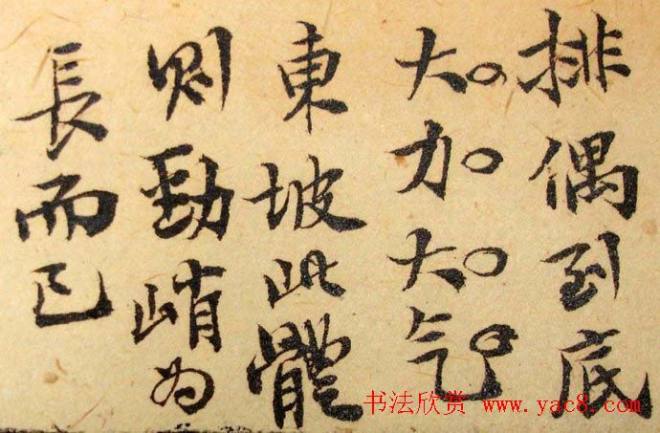 排偶到底
大加大气
東坡此體
则勁峭为
長而已
书法欣赏 www.yac8.com